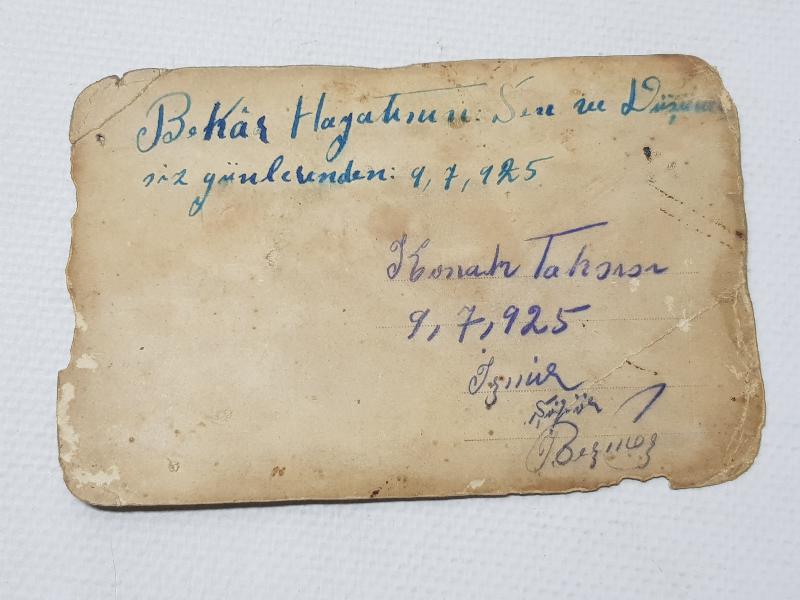 Bekâr Hayatımın: Şen ve Düşünce
siz günlerinden: 9,7,925
Konak Taksisi
9,7,925
İzmir
Şoför
Bezmez